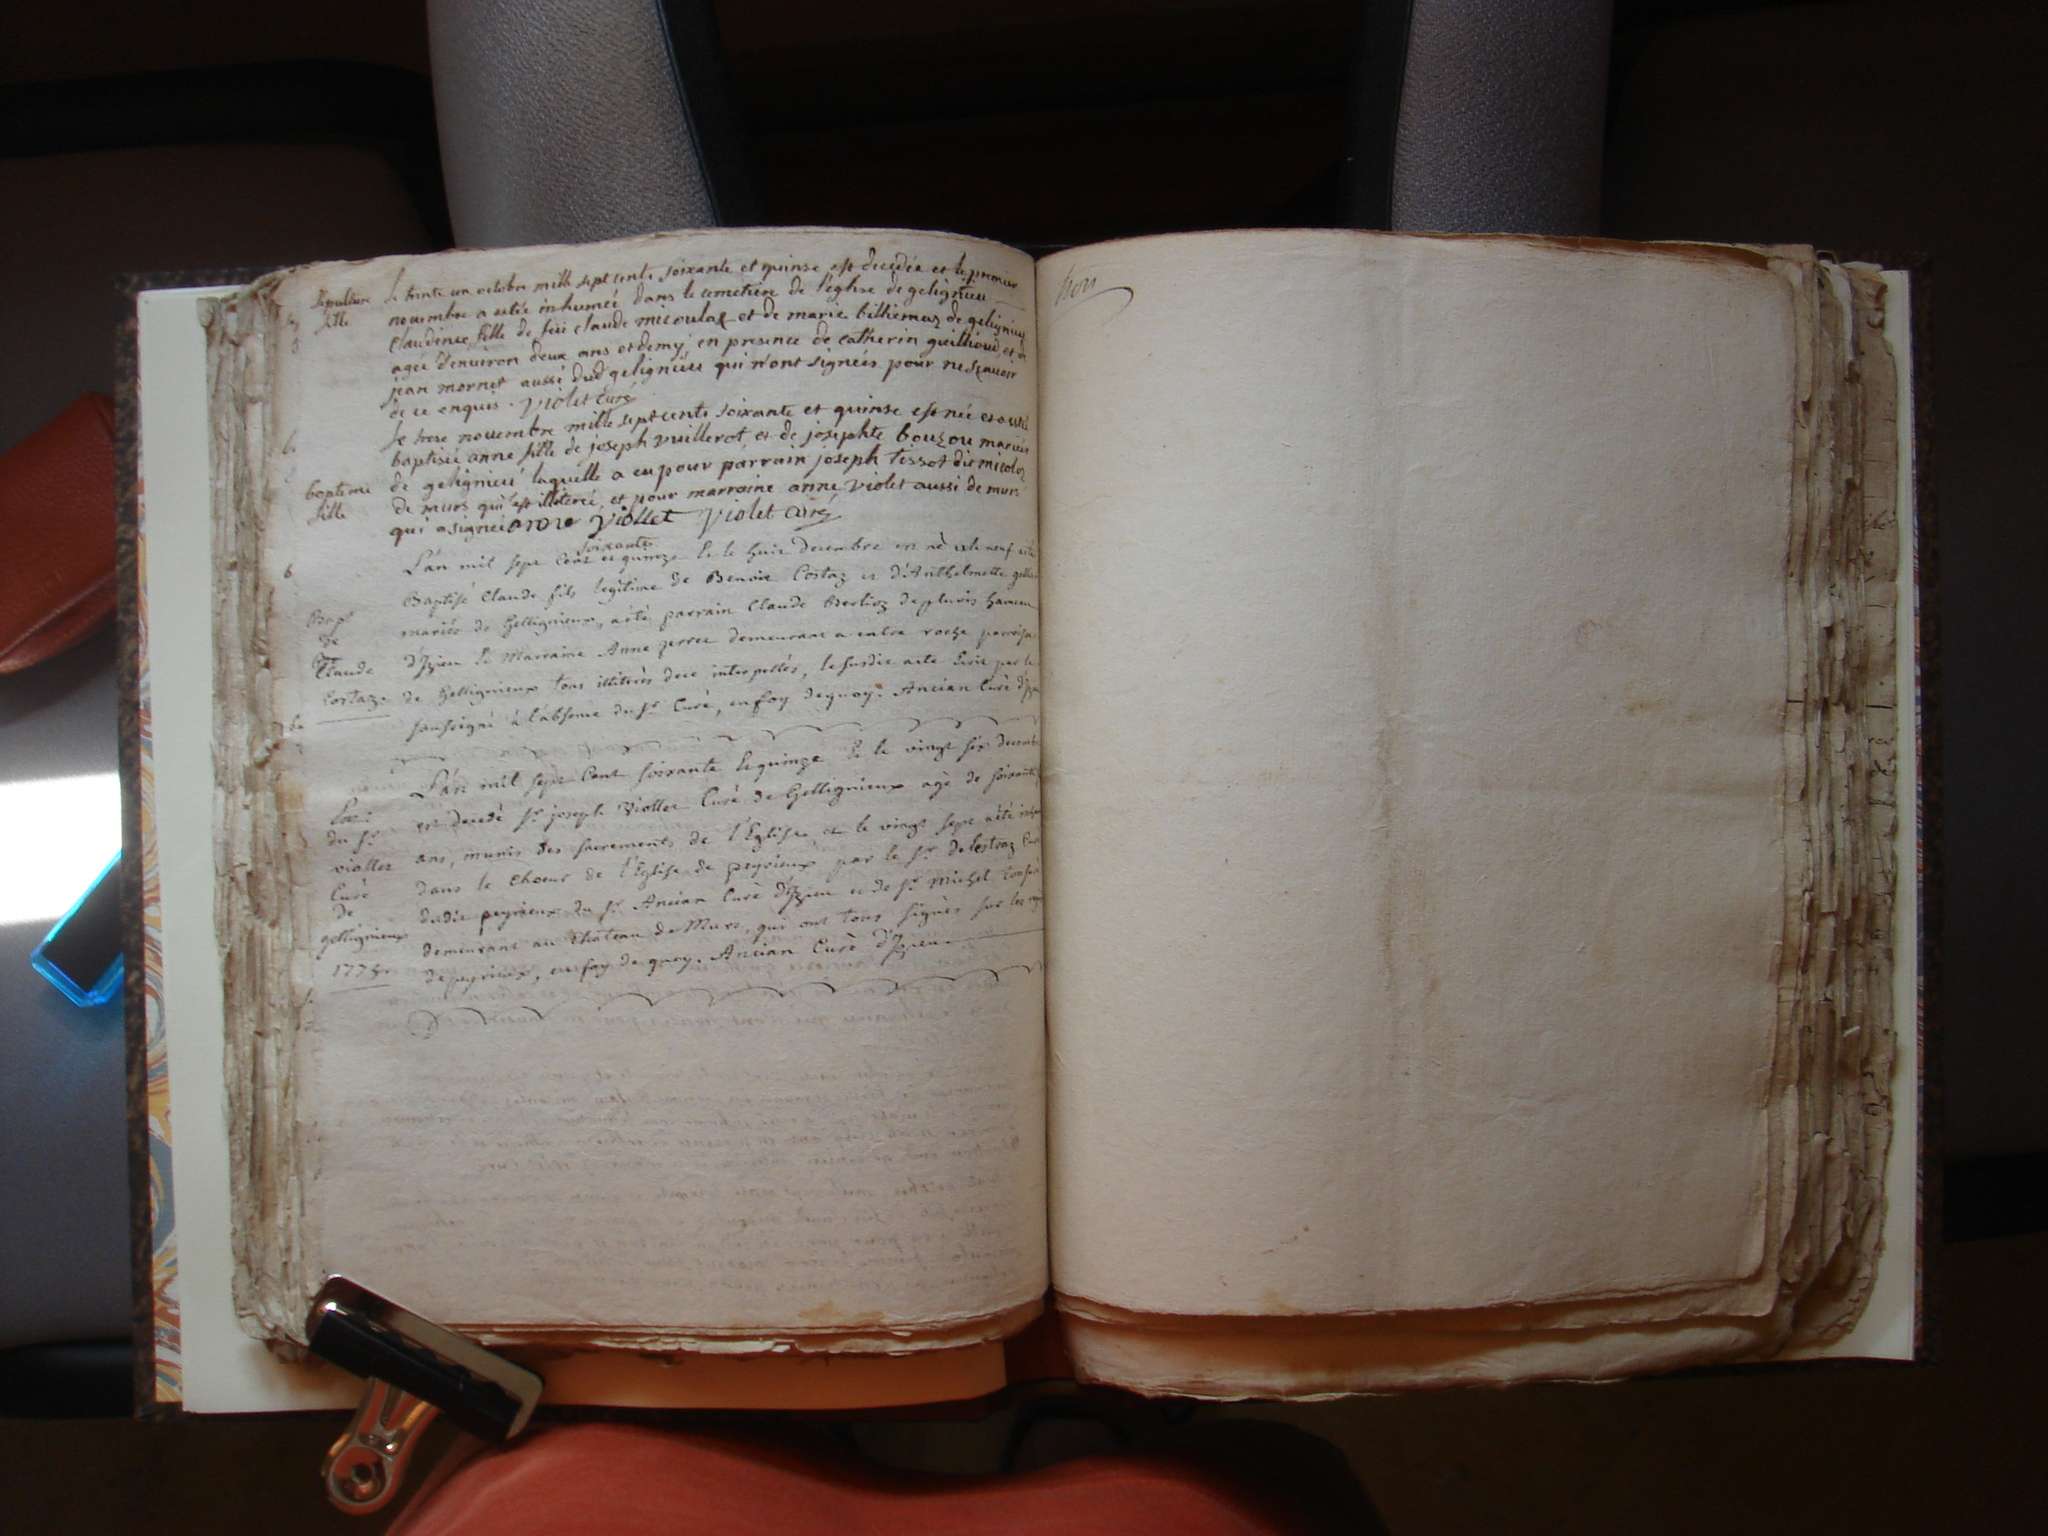 sepulture
fille
le trente un octobre mille sept cents soixante et quinse est decedée et le premier
novembre a estée inhumée dans le cemetiere de l'eglise de gelignieu
claudine fille de feu claude micoulaz et de marie billiemaz de gelignieu
agée d'environ deux ans et demy en presence de catherin guillioud et de
jean mornet aussi dud gelignieu qui n'ont signées pour ne sçavoir
de ce enquis. Violet curé
bapteme
fille
le trese novembre mille sept cents soixante et quinse est née et a esté
baptisée anne fille de joseph vuillerot et de josephte bouzou mariées
de gelignieu laquelle a eu pour parrain joseph tissot dit micoloz
de murs qui est illiteré, et pour marraine anne violet aussi de murs
qui a signé anne Viollet Violet curé
Bap.
de
Claude
Costaz
soixante
L'an mil sept cent et quinze & le huit decembre est né et le neuf a été
Baptisé Claude fils legitime de Benoit Costaz et d'Anthelmette
mariés de Gellignieux, a été parrain Claude Berlioz de pluvis hameau
d'Izieu & Marraine Anne perret demeurant a entre roche parroisse
de Gellignieux tous illiterés de ce interpellés, le susdit acte écrit par le
soussigné à l'absence du Sr. Curé, en foy de quoy. Ancian Curé d'Izieu
du Sr.
viollet
Curé
de
gellignieux
1775.
L'an mil sept cent soixante & quinze & le vingt six decembre
est decedé Sr. joseph Viollet Curé de Gellignieux agé de soixante
ans, munis des sacrements de l'Eglise et le vingt sept a été inhumé
dans le choeur de l'Eglise de peyrieux par le Sr. de lestraz Curé
dudit peyrieux du Sr. Ancian Curé d'Izieu et de Sr. Michel
demeurant au château de Murs, qui ont tous signés sur les
de peyrieux, en foy de quoy. Ancian Curé d'Izieu
trois